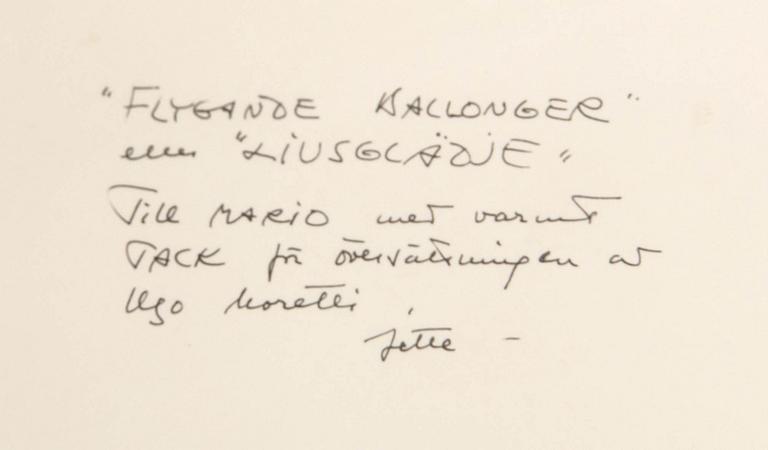 "FLYGANDE BALLONGER"
eller "LJUSGLÄDJE"
Till MARIO med varmt
TACK för översättningen av
Ugo Moretti
Jette –